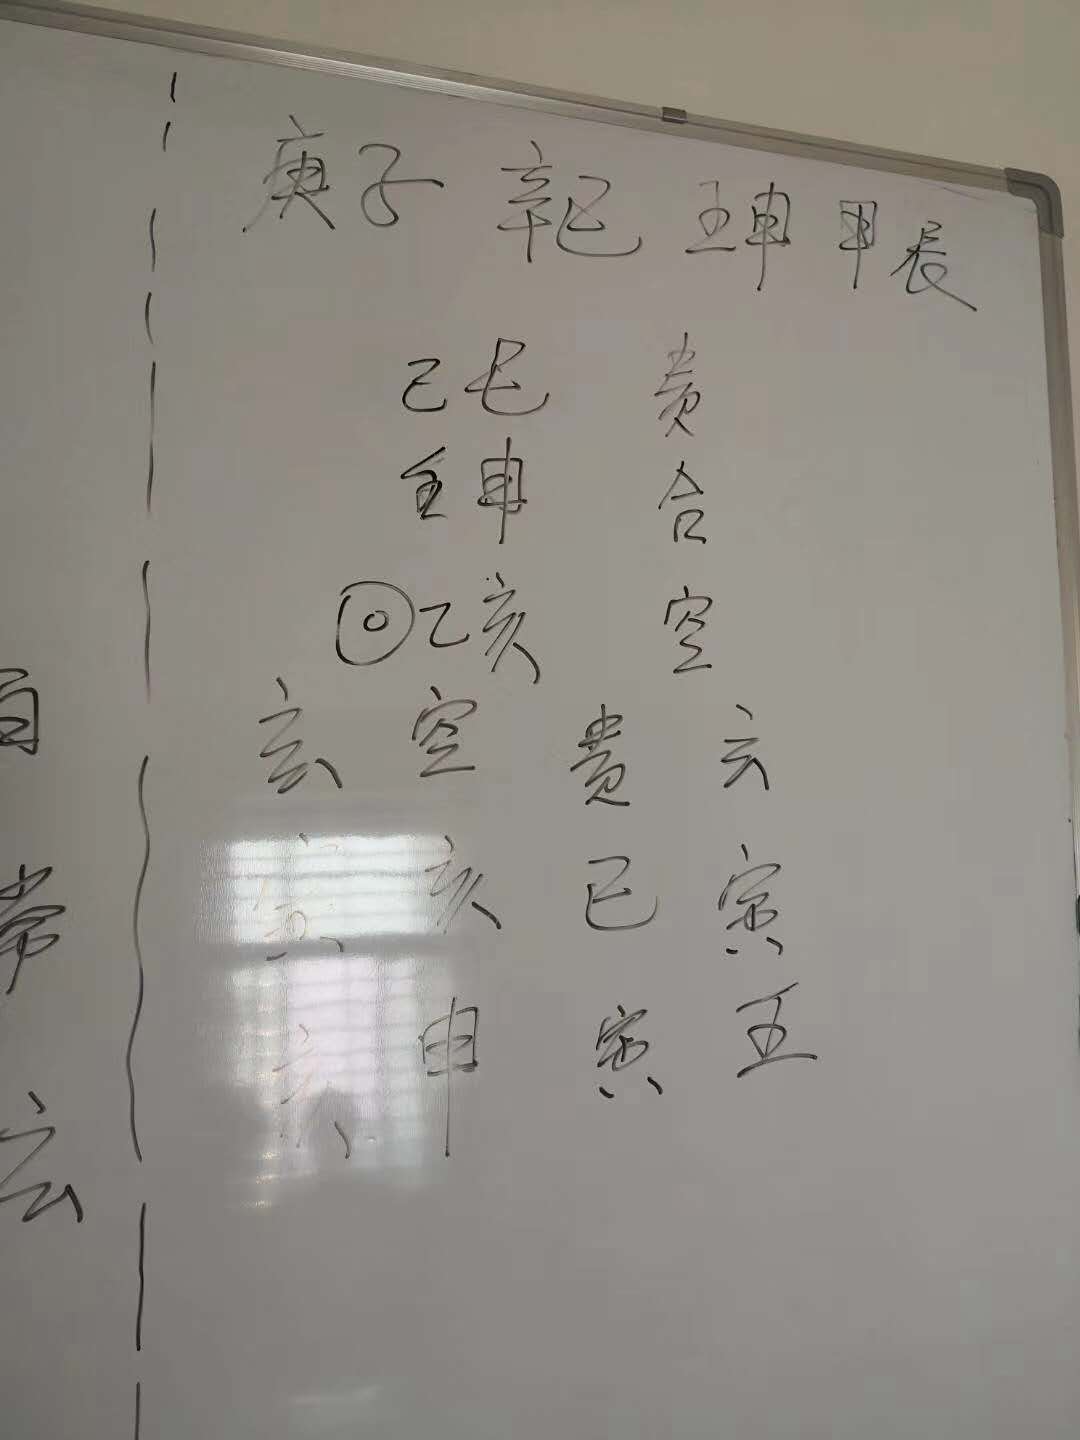 庚子 辛巳 壬申 甲辰
己巳 贵
壬申 合
◎乙亥 空
玄 空 贵 六
寅 亥 巳 寅
亥 申 寅 壬
常
玄